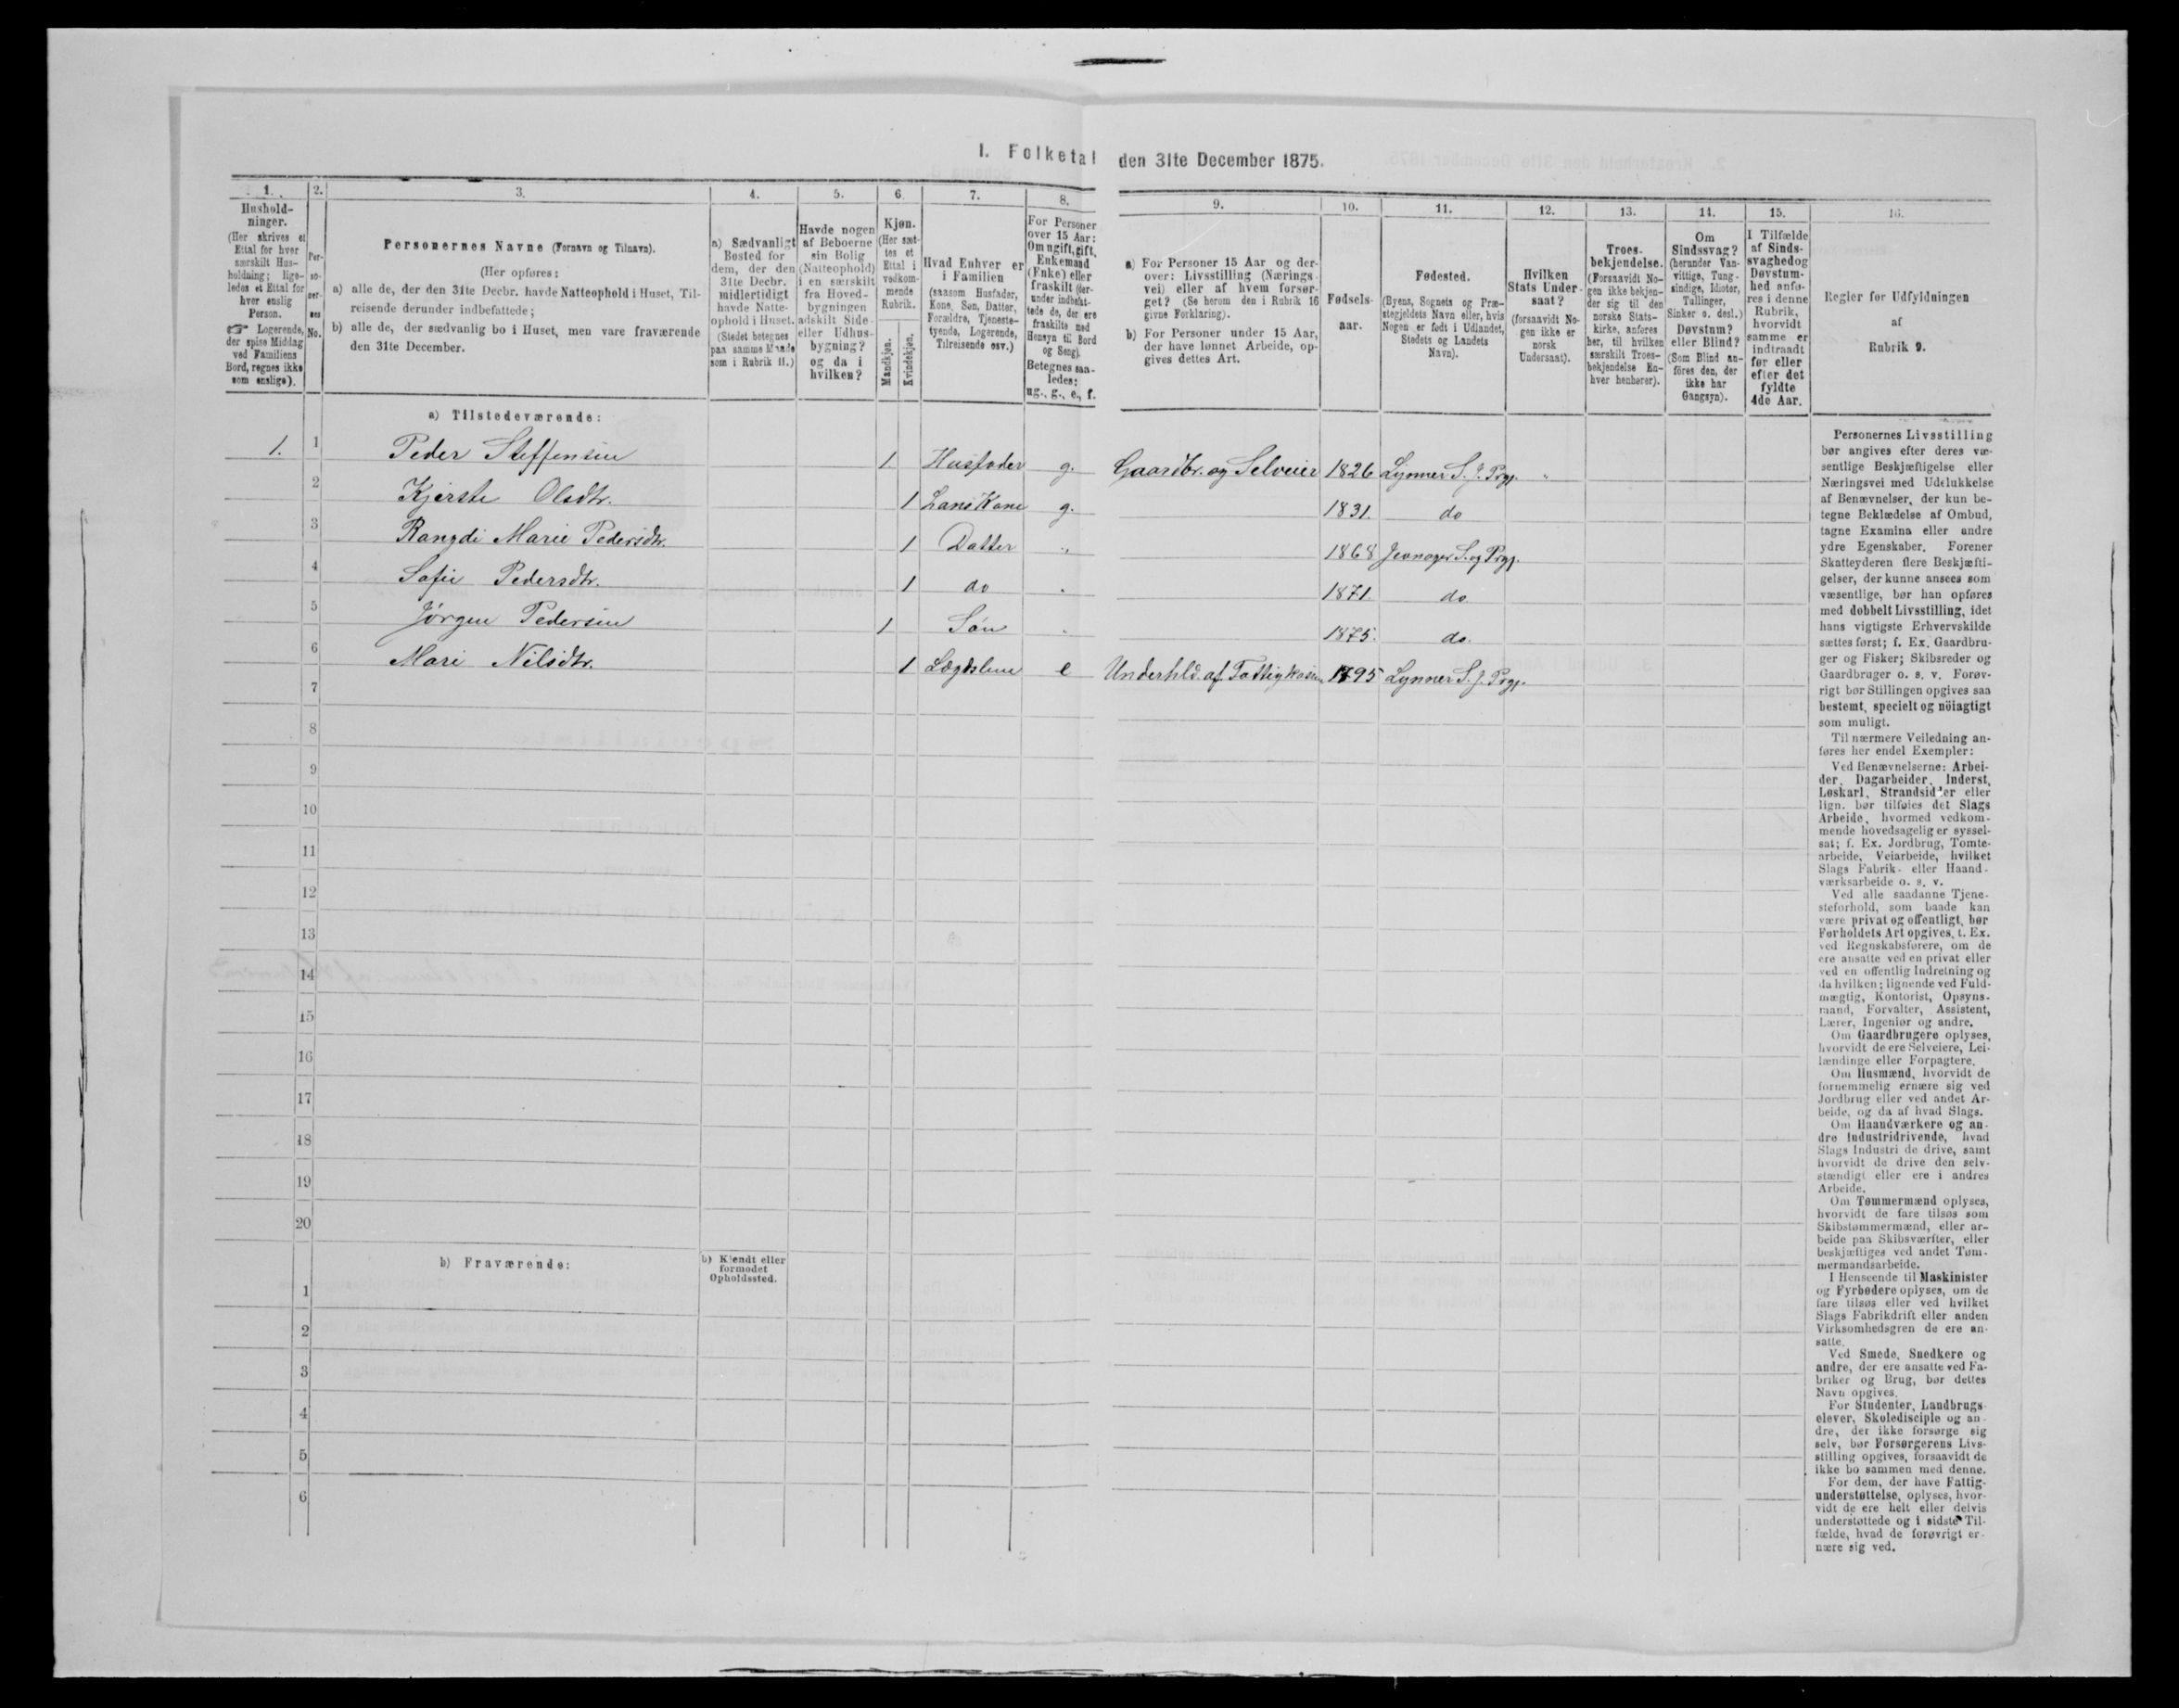 I. Folketal den 31te December 1875.
1.
Hushold-
ninger.
(Her skrives et
Ettal for hver
særskilt Hus-
holdning; lige-
ledes et Ettal for
hver enslig
Person.
☞ Logerende,
der spise Middag
ved Familiens
Bord, regnes ikke
som enslige).
2.
Per-
so-
ner-
nes
No.
3.
Personernes Navne (Fornavn og Tilnavn).
(Her opføres:
a) alle de, der den 31te Decbr. havde Natteophold i Huset, Til-
reisende derunder indbefattede;
b) alle de, der sædvanlig bo i Huset, men vare fraværende
den 31te December.
4.
a) Sædvanligt
Bosted for
dem, der den
31te Decbr.
midlertidigt
havde Natte-
ophold i Huset.
(Stedet betegnes
paa samme Maade
som i Rubrik 11.)
5.
Havde nogen
af Beboerne
sin Bolig
(Natteophold)
i en særskilt
fra Hoved-
bygningen
adskilt Side-
eller Udhus-
bygning?
og da i
hvilken?
6.
Kjøn.
(Her sæt-
tes et
Ettal i
vedkom-
mende
Rubrik.
Mandkjøn.
Kvindekjøn.
7.
Hvad Enhver er
i Familien
(saasom Husfader,
Kone, Søn, Datter,
Forældre, Tjeneste-
tyende, Logerende,
Tilreisende osv.)
8.
For Personer
over 15 Aar:
Om ugift, gift,
Enkemand
(Enke) eller
fraskilt (der-
under indbefat-
tede de, der ere
fraskilte med
Hensyn til Bord
og Seng).
Betegnes saa-
ledes:
ug., g., e., f.
9.
a) For Personer 15 Aar og der-
over: Livsstilling (Nærings-
vei) eller af hvem forsør-
get? (Se herom den i Rubrik 16
givne Forklaring).
b) For Personer under 15 Aar,
der have lønnet Arbeide, op-
gives dettes Art.
10.
Fødsels-
aar.
11.
Fødested.
(Byens, Sognets og Præ-
stegjeldets Navn eller, hvis
Nogen er født i Udlandet,
Stedets og Landets
Navn).
12.
Hvilken
Stats Under-
saat?
(forsaavidt No-
gen ikke er
norsk
Undersaat).
13.
Troes-
bekjendelse.
(Forsaavidt No-
gen ikke bekjen-
der sig til den
norske Stats-
kirke, anføres
her, til hvilken
særskilt Troes-
bekjendelse En-
hver henhører).
14.
Om
Sindssvag?
(herunder Van-
vittige, Tung-
sindige, Idioter,
Tullinger,
Sinker o. desl.)
Døvstum?
eller Blind?
(Som Blind an-
føres den, der
ikke har
Gangsyn).
15.
I Tilfælde
af Sinds-
svaghed og
Døvstum-
hed anfø-
res i denne
Rubrik,
hvorvidt
samme er
indtraadt
før eller
efter det
fyldte
4de Aar.
16.
Regler for Udfyldningen
af
Rubrik 9.
a) Tilstedeværende:
1. 1 Peder Steffensen 1. Husfader g. Gaardbr. og Selveier 1826 Lynner S. J. Prgj. "
2 Kjersti Olsdtr. 1 hans Kone g. 1831. do
3 Rangdi Marie Pedersdtr. 1 Datter " 1868 Jevnager S. og Prgj.
4 Sofie Pedersdtr. 1 do " 1871. do
5 Jørgen Pedersen 1 Søn " 1875. do.
6 Mari Nilsdtr. 1 Lægdslem e Underhld. af Fattigkassen 1795 Lynner S. J. Prgj.
7
8
9
10
11
12
13
14
15
16
17
18
19
20
b) Fraværende:
b) Kjendt eller
formodet
Opholdssted.
1
2
3
4
5
6
Personernes Livsstilling
bør angives efter deres væ-
sentlige Beskjæftigelse eller
Næringsvei med Udelukkelse
af Benævnelser, der kun be-
tegne Beklædelse af Ombud,
tagne Examina eller andre
ydre Egenskaber. Forener
Skatteyderen flere Beskjæfti-
gelser, der kunne ansees som
væsentlige, bør han opføres
med dobbelt Livsstilling, idet
hans vigtigste Erhvervskilde
sættes først; f. Ex. Gaardbru-
ger og Fisker; Skibsreder og
Gaardbruger o. s. v. Forøv-
rigt bør Stillingen opgives saa
bestemt, specielt og nöiagtigt
som muligt.
Til nærmere Veiledning an-
føres her endel Exempler:
Ved Benævnelserne: Arbei-
der, Dagarbeider, Inderst,
Løskarl, Strandsidder eller
lign. bør tilføies det Slags
Arbeide, hvormed vedkom-
mende hovedsagelig er syssel-
sat; f. Ex. Jordbrug, Tomte-
arbeide, Veiarbeide, hvilket
Slags Fabrik- eller Haand-
værksarbeide o. s. v.
Ved alle saadanne Tjene-
steforhold, som baade kan
være privat og offentligt, bør
Forholdets Art opgives, t. Ex.
ved Regnskabsførere, om de
ere ansatte ved en privat eller
ved en offentlig Indretning og
da hvilken; lignende ved Fuld-
mægtig, Kontorist, Opsyns-
mand, Forvalter, Assistent,
Lærer, Ingeniør og andre.
Om Gaardbrugere oplyses,
hvorvidt de ere Selveiere, Lei-
lændinge eller Forpagtere.
Om Husmænd, hvorvidt de
fornemmelig ernære sig ved
Jordbrug eller ved andet Ar-
beide, og da af hvad Slags.
Om Haandværkere og an-
dre Industridrivende, hvad
Slags Industri de drive, samt
hvorvidt de drive den selv-
stændigt eller ere i andres
Arbeide.
Om Tømmermænd oplyses,
hvorvidt de fare tilsøs som
Skibstømmermænd, eller ar-
beide paa Skibsværfter, eller
beskjæftiges ved andet Tøm-
mermandsarbeide.
I Henseende til Maskinister
og Fyrbødere oplyses, om de
fare tilsøs eller ved hvilket
Slags Fabrikdrift eller anden
Virksomhedsgren de ere an-
satte.
Ved Smede, Snedkere og
andre, der ere ansatte ved Fa-
briker og Brug, bør dettes
Navn opgives.
For Studenter, Landbrugs-
elever, Skoledisciple og an-
dre, der ikke forsørge sig
selv, bør Forsørgerens Livs-
stilling opgives, forsaavidt de
ikke bo sammen med denne.
For dem, der have Fattig-
understøttelse, oplyses, hvor-
vidt de ere helt eller delvis
understøttede og i sidste Til-
fælde, hvad de forøvrigt er-
nære sig ved.